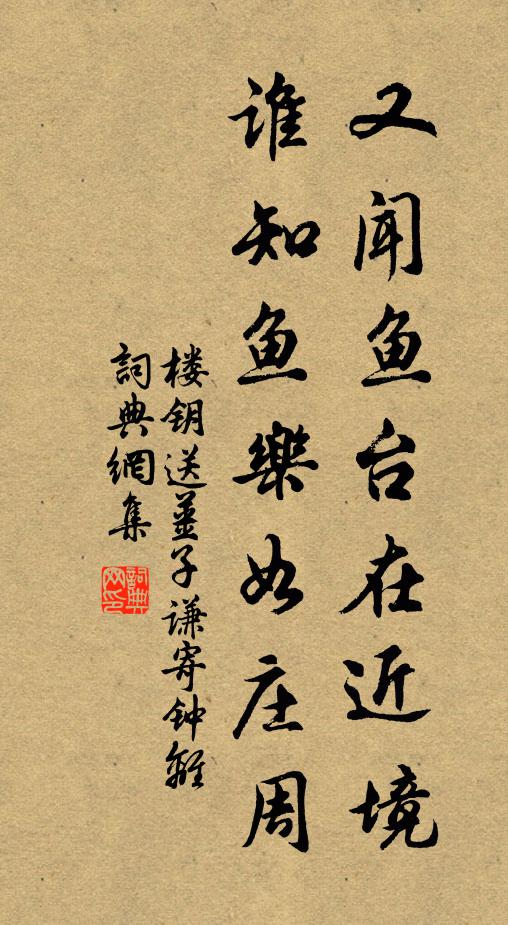 又闻鱼台在近境
谁知鱼樂如庄周
楼钥送薑子谦寄钟離
詞典網集
詞典网印